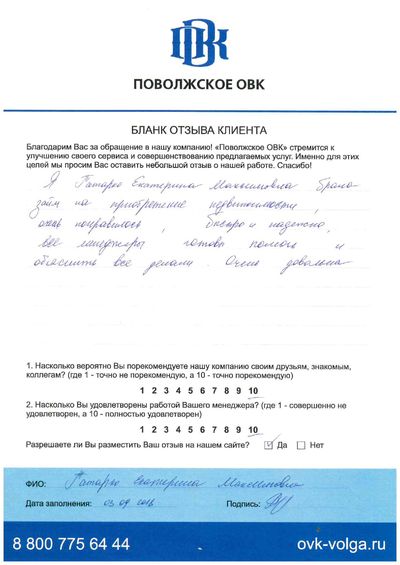 ОВК
ПОВОЛЖСКОЕ ОВК
БЛАНК ОТЗЫВА КЛИЕНТА
Благодарим Вас за обращение в нашу компанию! «Поволжское ОВК» стремится к
улучшению своего сервиса и совершенствованию предлагаемых услуг. Именно для этих
целей мы просим Вас оставить небольшой отзыв о нашей работе. Спасибо!
Я Татарко Екатерина Максимовна брала
займ на приобретение недвижимости,
очень понравилось, быстро и надежно,
все менеджеры готовы помочь и
объяснить все детали. Очень довольна
1. Насколько вероятно Вы порекомендуете нашу компанию своим друзьям, знакомым,
коллегам? (где 1 - точно не порекомендую, а 10 - точно порекомендую)
1 2 3 4 5 6 7 8 9 10
2. Насколько Вы удовлетворены работой Вашего менеджера? (где 1 - совершенно не
удовлетворен, а 10 - полностью удовлетворен)
1 2 3 4 5 6 7 8 9 10
Разрешаете ли Вы разместить Ваш отзыв на нашем сайте? Да Нет
ФИО: Татарко Екатерина Максимовна
Дата заполнения: 03 09 2016 Подпись:
8 800 775 64 44 ovk-volga.ru